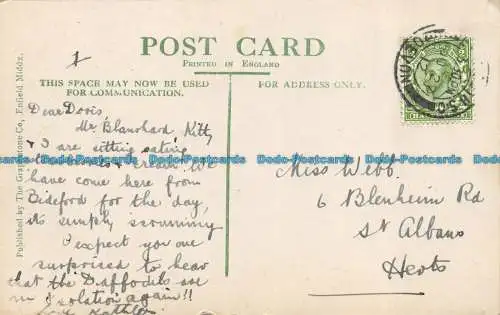 POST CARD
PRINTED IN ENGLAND
THIS SPACE MAY NOW BE USED
FOR COMMUNICATION.
FOR ADDRESS ONLY.
Published by The Graphotone Co., Enfield Middx.
Dear Doris
Mr. Blanchard, Kitty
& I are sitting eating
& cream. We
have come here from
Bideford for the day,
its simply scrummy
I expect you are
surprised to hear
that the Daffodils are
in isolation again!!
Love Kathleen
Miss Webb.
6 Blenheim Rd
St Albans
Herts
Dodo-Postcards Dodo-Postcards Dodo-Postcards Dodo-Postcards